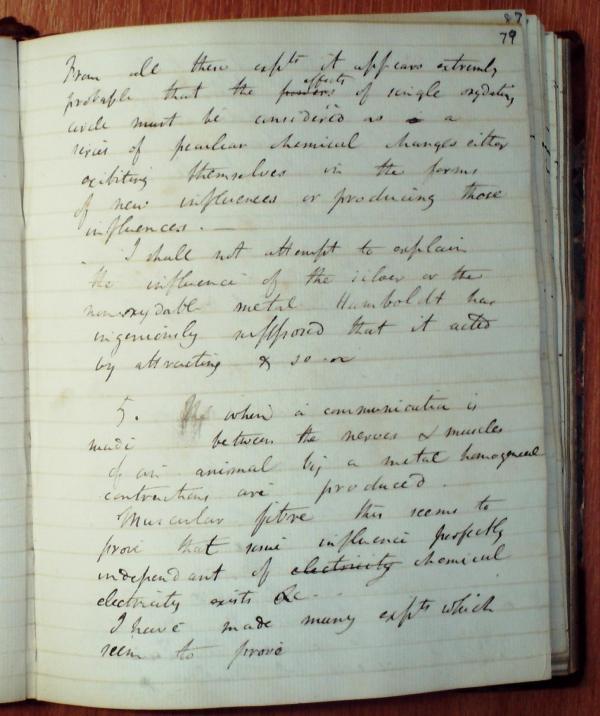 87.
79
From all these expts it appears extremely
probable that the powers effects of single oxydating
circle must be considered as a
series of peculiar chemical changes either
exibiting themselves in the forms
of new influences or producing those
influences. —
I shall not attempt to explain
the influence of the silver or the
non oxydable metal Humboldt has
ingeniously supposed that it acted
by attracting & so on
5. when a communication is
made between the nerves & muscles
of an animal by a metal homogeneal
contractions are produced.
Muscular fibre this seems to
prove that some influence perfectly
independant of electricity chemical
electricity exists &c.
I have made many expts which
seem to prove